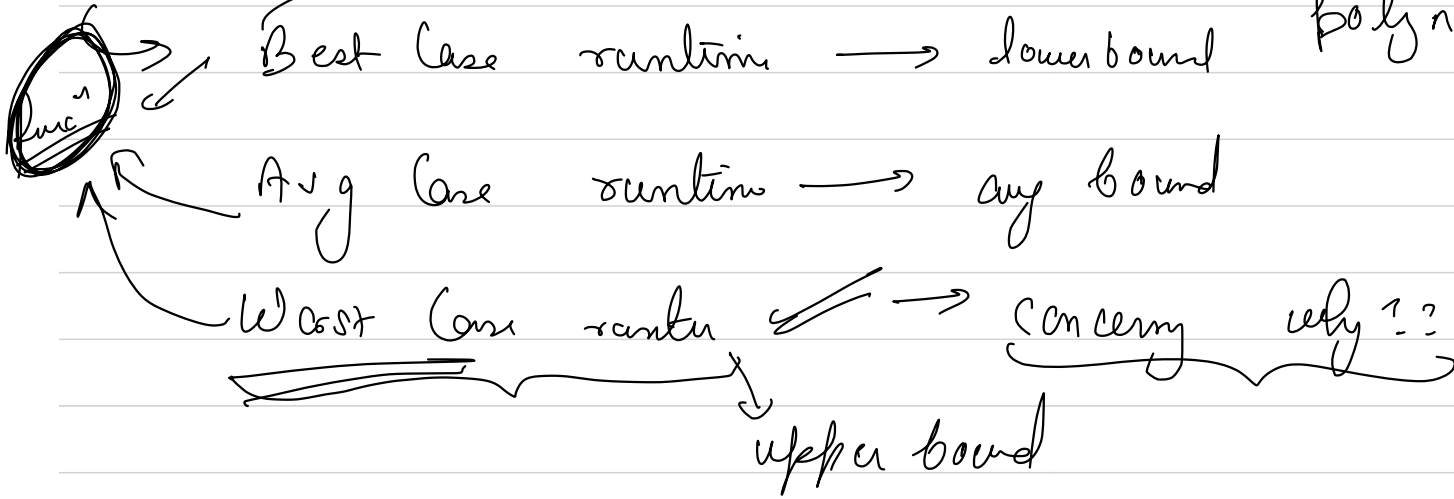 Best Case runtime → lowerbound polyn
func^n
Avg Case runtime → avg bound
Worst Case runtn → concerng why ??
upper bound